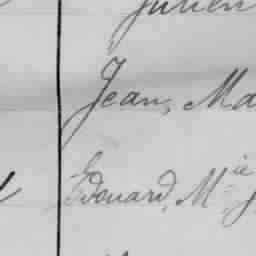 Julien
Jean, Ma
Edouard, Mie J